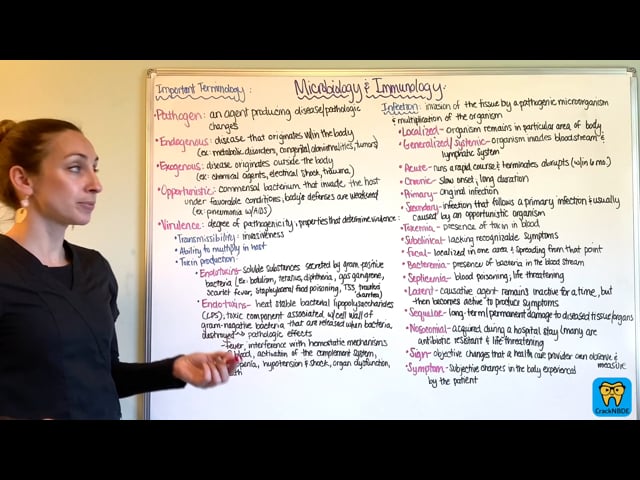 Microbiology & Immunology:
Important Terminology:
• Pathogen: an agent producing disease/pathologic
changes
• Endogenous: disease that originates w/in the body
(ex: metabolic disorders, congenital abnormalities, tumors)
• Exogenous: disease originates outside the body
(ex: chemical agents, electrical shock, trauma)
• Opportunistic: commensal bacterium that invade the host
under favorable conditions, body's defenses are weakened
(ex: pneumonia w/AIDS)
• Virulence: degree of pathogenicity, properties that determine virulence:
• Transmissibility: invasiveness
• Ability to multiply in host
• Toxin production:
Exotoxins- soluble substances secreted by gram-positive
bacteria (ex: botulism, tetanus, diphtheria, gas gangrene,
scarlet fever, Staphylococcal food poisoning, TSS, travelers
diarrhea)
Endotoxins- heat stable bacterial lipopolysaccharides
(LPS), toxic component associated w/cell wall of
gram-negative bacteria that are released when bacteria
destroyed → pathologic effects
-fever, interference with hemostatic mechanisms
blood, activation of the complement system,
hypotension & shock, organ dysfunction,
Infection: invasion of the tissue by a pathogenic microorganism
& multiplication of the organism
• Localized- organism remains in particular area of body
• Generalized/Systemic- organism invades bloodstream &
lymphatic system
• Acute- runs a rapid course & terminates abruptly (w/in 6 mo)
• Chronic- slow onset, long duration
• Primary- original infection
• Secondary- infection that follows a primary infection & usually
caused by an opportunistic organism
• Toxemia- presence of toxin in blood
• Subclinical- lacking recognizable symptoms
• Focal- localized in one area & spreading from that point
• Bacteremia- presence of bacteria in the blood stream
• Septicemia- blood poisoning, life threatening
• Latent- causative agent remains inactive for a time, but
then becomes active to produce symptoms
• Sequelae- long-term/permanent damage to diseased tissue/organs
• Nosocomial- acquired during a hospital stay (many are
antibiotic resistant & life threatening
• Sign- objective changes that a health care provider can observe &
measure
• Symptom- subjective changes in the body experienced
by the patient
CrackNBDE